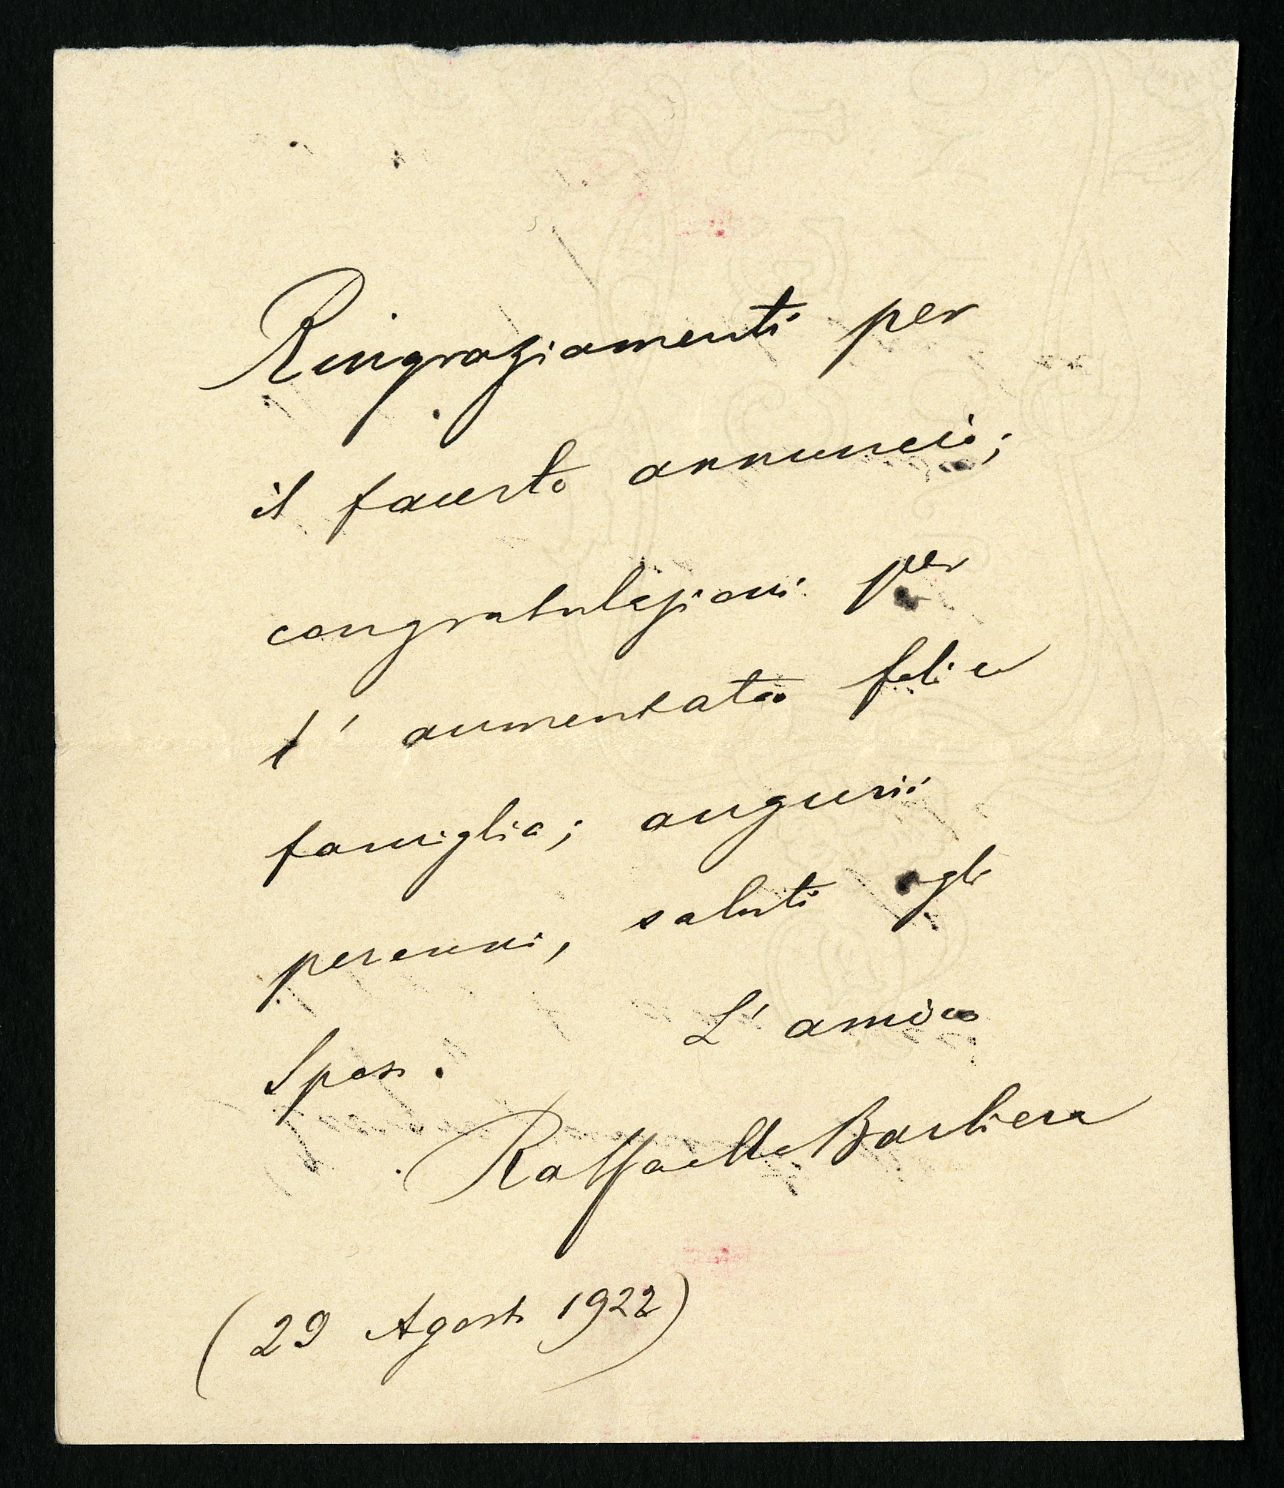 Ringraziamenti per
il fausto annuncio;
congratulazioni per
l' aumentata felice
famiglia; augurii
perenni, saluti agli
Sposi. L' amico
Raffaello Barbiera
(29 Agosto 1922)